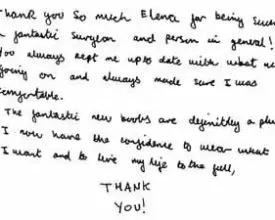 Thank you so much Elena for being such
a fantastic surgeon and person in general!
You always kept me up to date with what was
going on and always made sure I was
comfortable.
The fantastic new boobs are definitely a plus
I now have the confidence to wear what
I want and to live my life to the full,
THANK
YOU!